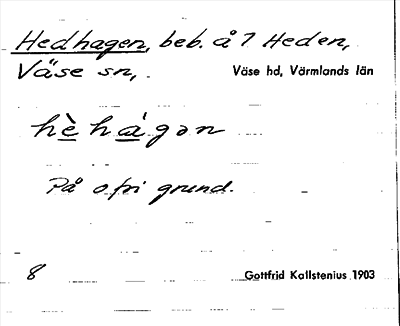 Hedhagen, beb. å 7 Heden,
Väse sn, Väse hd, Värmlands län
hè hágən
På ofri grund.
8 Gottfrid Kallstenius 1903